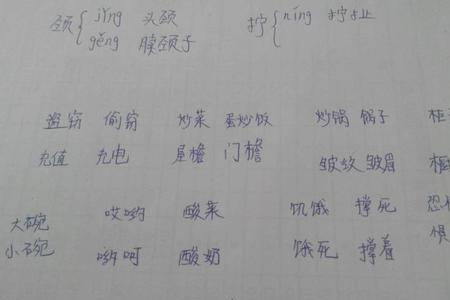 颈{jǐng 头颈 拧{níng 拧
gěng 脖颈子
盗窃 偷窃 炒菜 蛋炒饭 炒锅 锅子
充值 充电 屋檐 门檐 皱纹 皱眉
大碗 哎哟 酸菜 饥饿 撑死 恐
小碗 哟呵 酸奶 饿死 撑着 惧